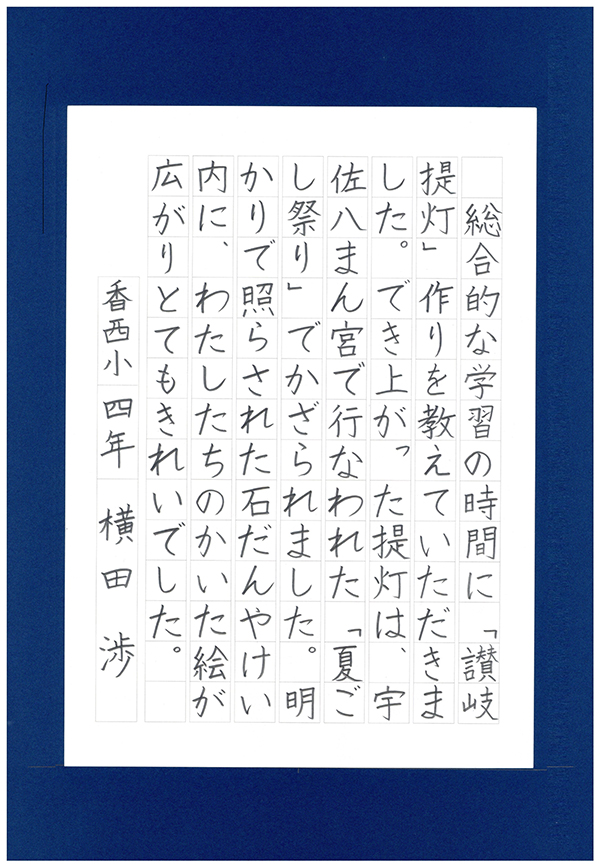 総合的な学習の時間に「讃岐
提灯」作りを教えていただきま
した。でき上がった提灯は、宇
佐八まん宮で行なわれた「夏ご
し祭り」でかざられました。明
かりで照らされた石だんやけい
内に、わたしたちのかいた絵が
広がりとてもきれいでした。
香西小四年 横田 渉